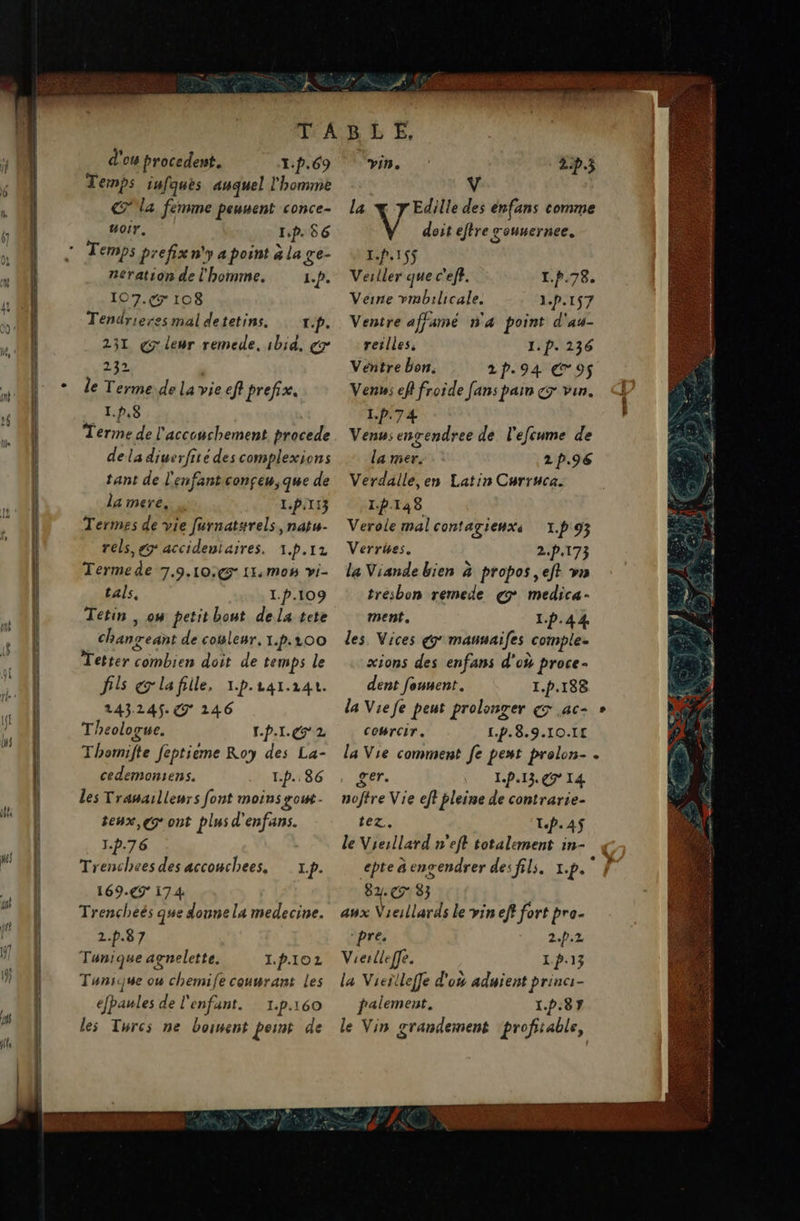 TABLE.
d'ou procedent. 1.p.69
Temps iusques auquel l'homme
& la femme peuuent conce-
uoir. 1.p.86
Temps prefix n'y a point à la ge-
neration de l'homme. 1.p.
107.& 108
Tendrieres mal de tetins. 1.p.
231 & leur remede, ibid, &
232
le Terme de la vie est prefix.
1.p.8
Terme de l'accouchement procede
de la diuersité des complexions
tant de l'enfant conçeu, que de
la mere, 1.p.113
Termes de vie surnaturels, natu-
rels, & accidentaires. 1.p.12
Terme de 7.9.10.& 11. mon vi-
tals, 1.p.109
Tetin, ou petit bout de la tete
changeant de couleur. 1.p.200
Tetter combien doit de temps le
fils & la fille. 1.p.241.242.
243.245.& 246
Theologue. 1.p.1.& 2
Thomiste septiéme Roy des La-
cedemoniens. 1.p.86
les Trauailleurs sont moins gout-
teux, & ont plus d'enfans.
1.p.76
Trenchees des accouchees, 1.p.
169.& 174
Trencheés que donne la medecine.
2.p.87
Tunique agnelette. 1.p.102
Tunique ou chemise couurant les
espaules de l'enfant. 1.p.160
les Turcs ne boiuent point de
vin. 2.p.3
V
la VEdille des enfans comme
doit estre gouuernee.
1.p.155
Veiller que c'est. 1.p.78.
Veine vmbilicale. 1.p.157
Ventre affamé n'a point d'au-
reilles. 1.p. 236
Ventre bon. 2 p.94 & 95
Venus est froide sans pain & vin.
1.p.74
Venus engendree de l'escume de
la mer. 2 p.96
Verdalle, en Latin Curruca.
1.p.148
Verole mal contagieux. 1.p 93
Verrües. 2.p.173
la Viande bien à propos, est vn
tresbon remede & medica-
ment. 1.p.44
les Vices & mauuaises comple-
xions des enfans d'où proce-
dent souuent. 1.p.188
la Vie se peut prolonger & ac-
courcir. 1.p.8.9.10.11
la Vie comment se peut prolon-
ger. 1.p.13.& 14
nostre Vie est pleine de contrarie-
tez. 1.p.45
le Vieillard n'est totalement in-
epte à engendrer des fils. 1.p.
82.& 83
aux Vieillards le vin est fort pro-
pre. 2.p.2
Vieillesse. 1.p.13
la Vieillesse d'où aduient princi-
palement. 1.p.87
le Vin grandement profitable,